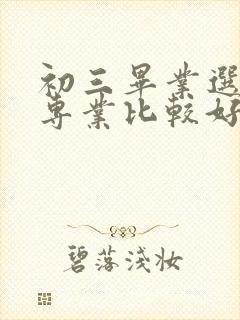 初三畢業選
專業比較好
碧落淺妆